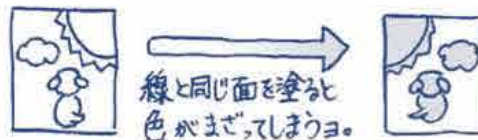 線と同じ面を塗ると
色がまざってしまうヨ。